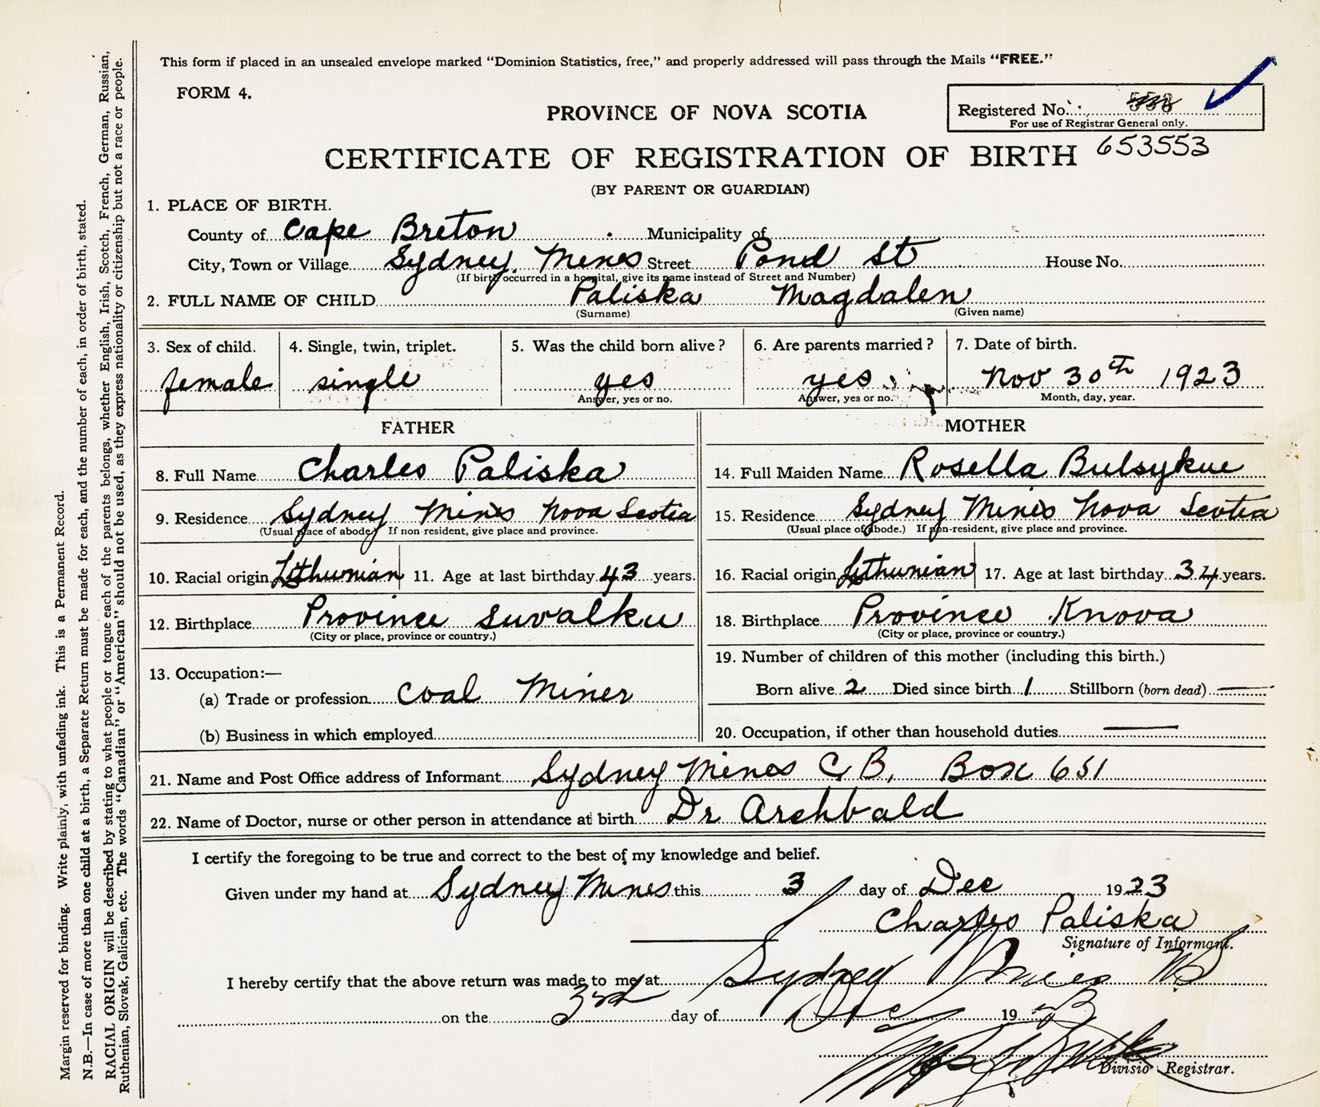 This form if placed in an unsealed envelope marked "Dominion Statistics, free," and properly addressed will pass through the Mails "FREE."
FORM 4.
PROVINCE OF NOVA SCOTIA
Registered No.
For use of Registrar General only.
653553
CERTIFICATE OF REGISTRATION OF BIRTH
(BY PARENT OR GUARDIAN)
1. PLACE OF BIRTH.
County of Cape Breton Municipality of
City, Town or Village Sydney Mines Street Pond St House No.
(If birth occurred in a hospital, give its name instead of Street and Number)
2. FULL NAME OF CHILD Paliska Magdalen
(Surname) (Given name)
3. Sex of child. 4. Single, twin, triplet. 5. Was the child born alive? 6. Are parents married? 7. Date of birth.
female single yes yes Nov 30th 1923
Answer, yes or no. Answer, yes or no. Month, day, year.
FATHER
8. Full Name Charles Paliska
9. Residence Sydney Mines Nova Scotia
(Usual place of abode) If non resident, give place and province.
10. Racial origin Lithunian 11. Age at last birthday 43 years.
12. Birthplace Province Suvalku
(City or place, province or country.)
13. Occupation:—
(a) Trade or profession Coal Miner
(b) Business in which employed
MOTHER
14. Full Maiden Name Rosella Bulsykue
15. Residence Sydney Mines Nova Scotia
(Usual place of abode.) If non-resident, give place and province.
16. Racial origin Lithunian 17. Age at last birthday 34 years.
18. Birthplace Province Knova
(City or place, province or country.)
19. Number of children of this mother (including this birth.)
Born alive 2 Died since birth 1 Stillborn (born dead) —
20. Occupation, if other than household duties —
21. Name and Post Office address of Informant Sydney Mines C,B, Box 651
22. Name of Doctor, nurse or other person in attendance at birth Dr Archbald
I certify the foregoing to be true and correct to the best of my knowledge and belief.
Given under my hand at Sydney Mines this 3 day of Dec 1923
Charles Paliska
Signature of Informant.
I hereby certify that the above return was made to me at Sydney Mines NS
on the 3rd day of Dec 1923
Division Registrar.
Margin reserved for binding. Write plainly, with unfading ink. This is a Permanent Record.
N.B.—In case of more than one child at a birth, a Separate Return must be made for each, and the number of each, in order of birth, stated.
RACIAL ORIGIN will be described by stating to what people or tongue each of the parents belongs, whether English, Irish, Scotch, French, German, Russian,
Ruthenian, Slovak, Galician, etc. The words "Canadian" or "American" should not be used, as they express nationality or citizenship but not a race or people.